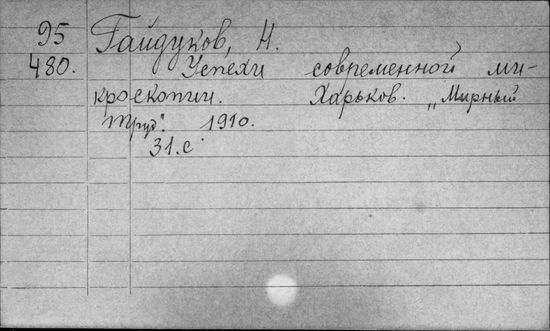 95 Гайдуков, Н.
480. Успехи современной ми-
кроскопии. Харьков. „Мирный
труд". 1910.
31.с